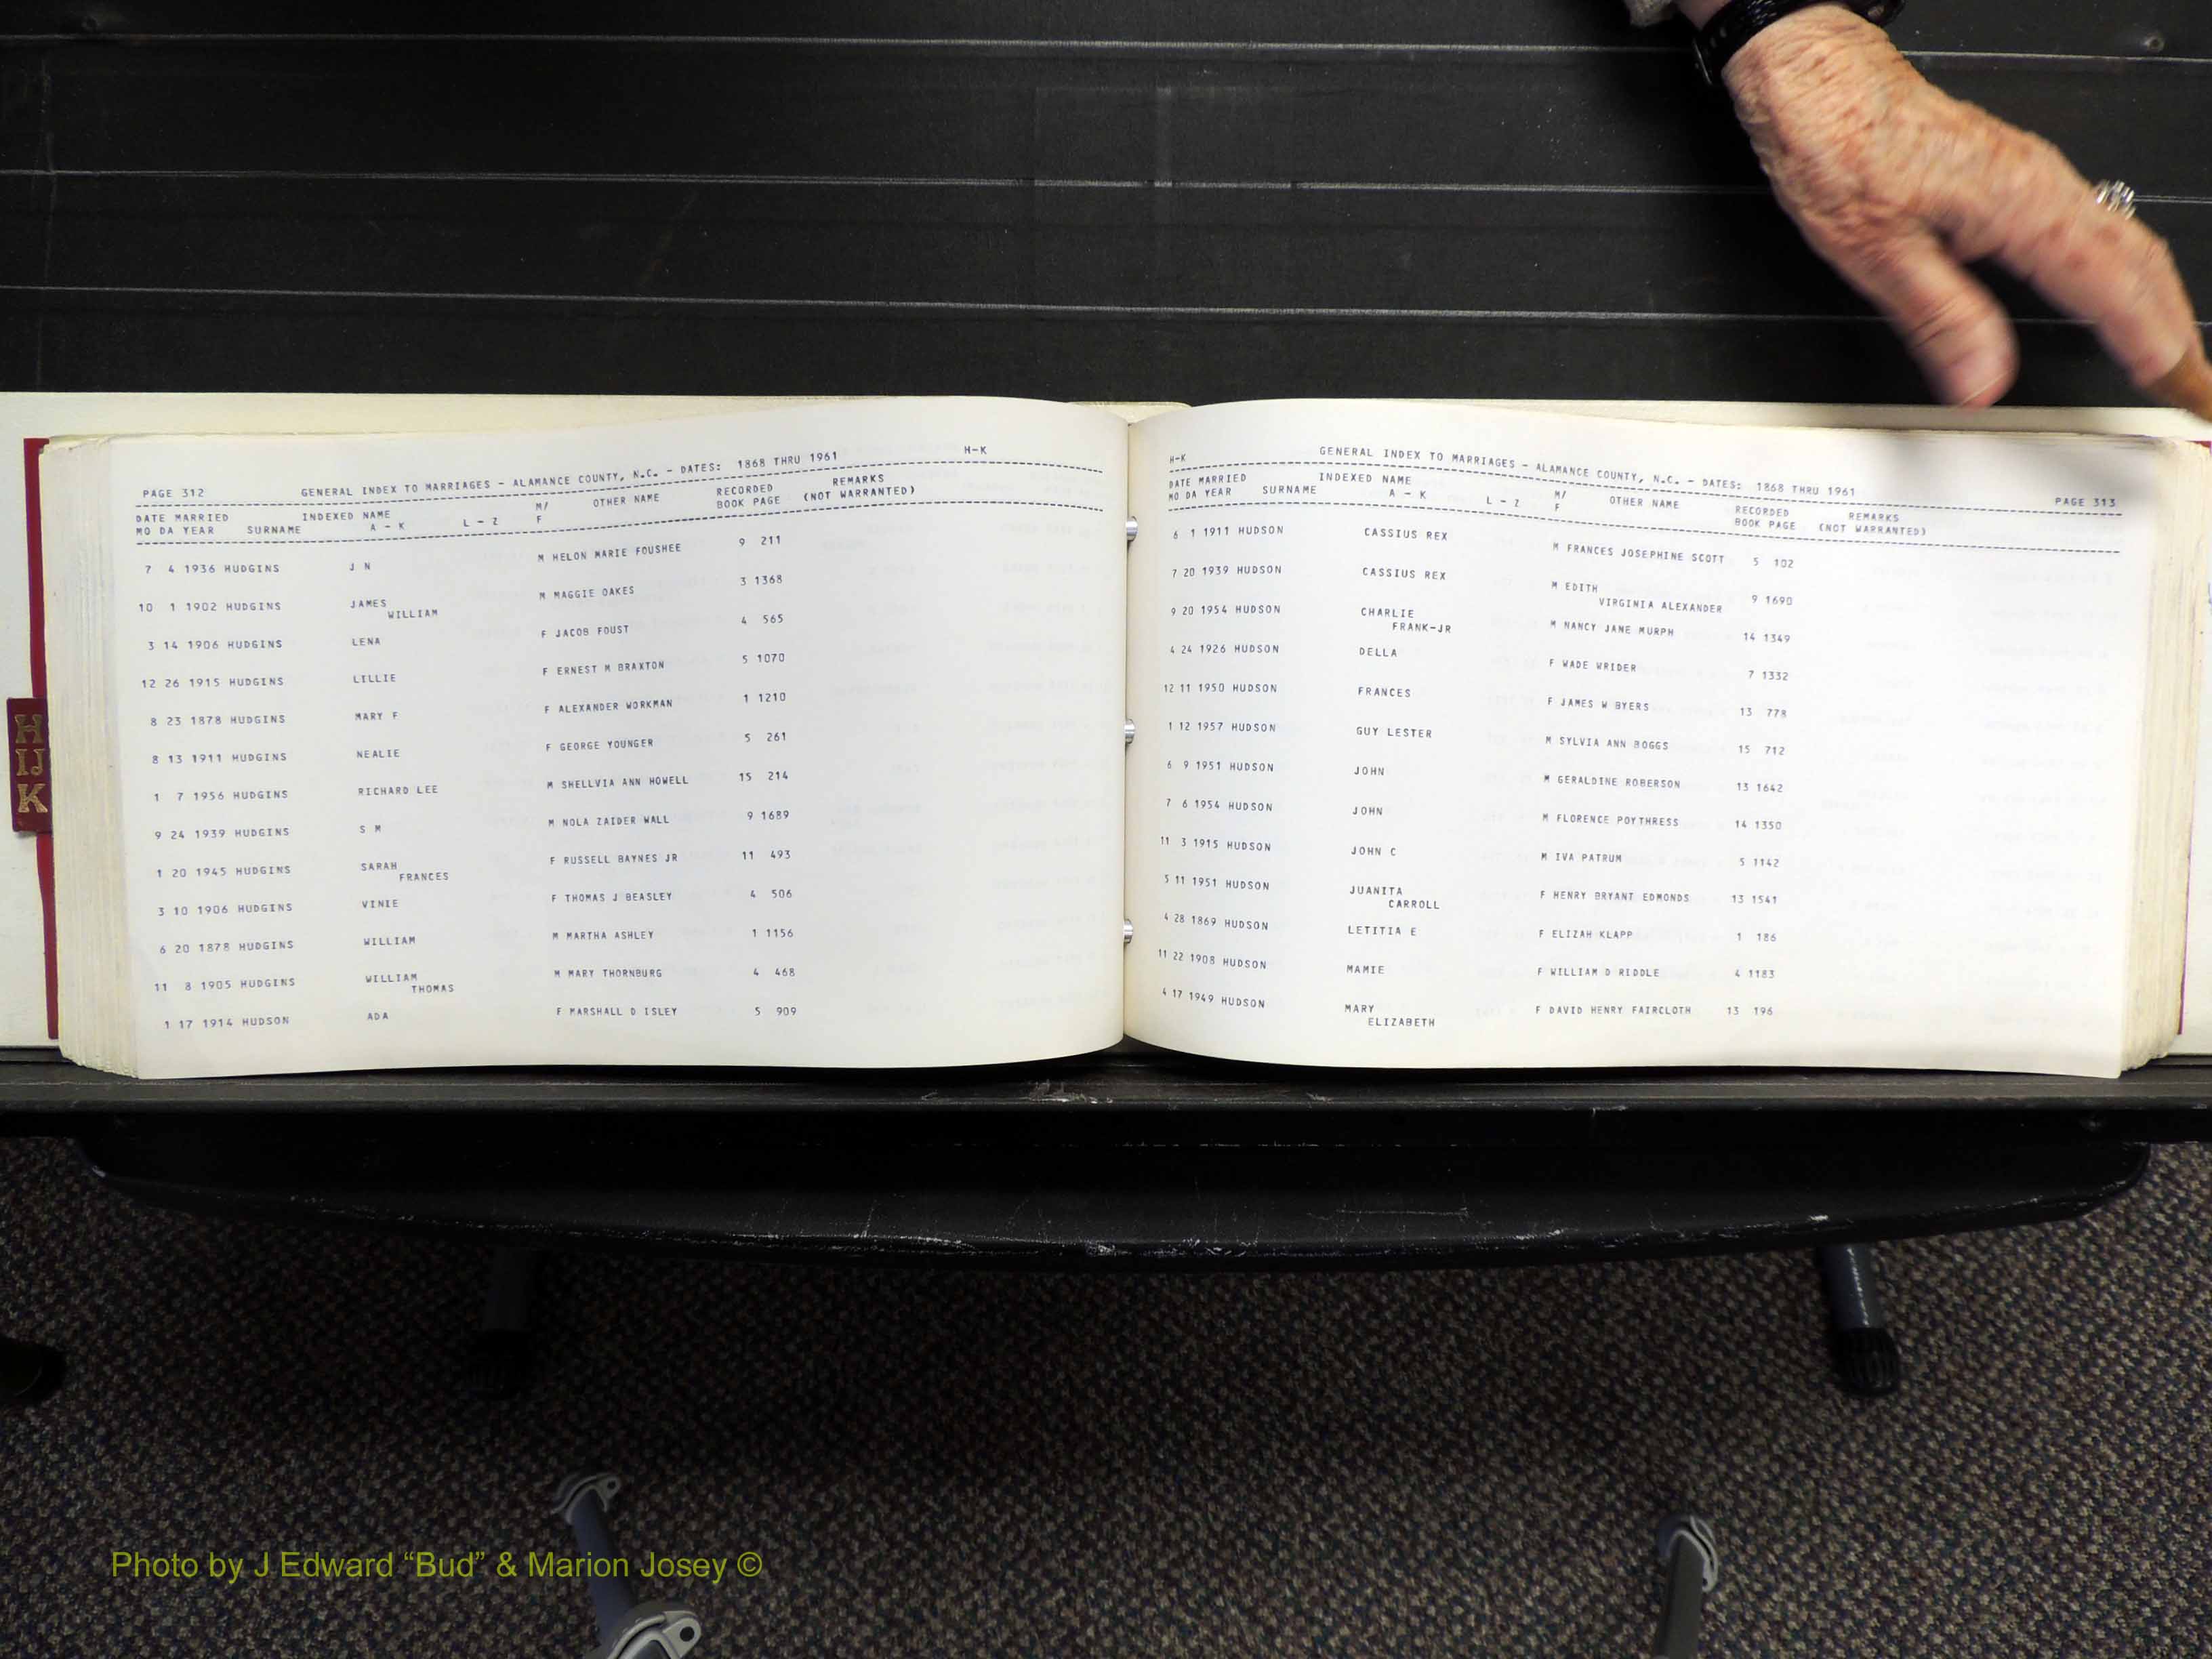 PAGE 312 GENERAL INDEX TO MARRIAGES - ALAMANCE COUNTY, N.C. - DATES: 1868 THRU 1961 H-K
DATE MARRIED INDEXED NAME M/ OTHER NAME RECORDED REMARKS
MO DA YEAR SURNAME A - K L - Z F BOOK PAGE (NOT WARRANTED)
7 4 1936 HUDGINS J N M HELON MARIE FOUSHEE 9 211
10 1 1902 HUDGINS JAMES M MAGGIE OAKES 3 1368
WILLIAM
3 14 1906 HUDGINS LENA F JACOB FOUST 4 565
12 26 1915 HUDGINS LILLIE F ERNEST M BRAXTON 5 1070
8 23 1878 HUDGINS MARY F F ALEXANDER WORKMAN 1 1210
8 13 1911 HUDGINS NEALIE F GEORGE YOUNGER 5 261
1 7 1956 HUDGINS RICHARD LEE M SHELLVIA ANN HOWELL 15 214
9 24 1939 HUDGINS S M M NOLA ZAIDER WALL 9 1689
1 20 1945 HUDGINS SARAH F RUSSELL BAYNES JR 11 493
FRANCES
3 10 1906 HUDGINS VINIE F THOMAS J BEASLEY 4 506
6 20 1878 HUDGINS WILLIAM M MARTHA ASHLEY 1 1156
11 8 1905 HUDGINS WILLIAM M MARY THORNBURG 4 468
THOMAS
1 17 1914 HUDSON ADA F MARSHALL D ISLEY 5 909
H-K GENERAL INDEX TO MARRIAGES - ALAMANCE COUNTY, N.C. - DATES: 1868 THRU 1961 PAGE 313
DATE MARRIED INDEXED NAME M/ OTHER NAME RECORDED REMARKS
MO DA YEAR SURNAME A - K L - Z F BOOK PAGE (NOT WARRANTED)
6 1 1911 HUDSON CASSIUS REX M FRANCES JOSEPHINE SCOTT 5 102
7 20 1939 HUDSON CASSIUS REX M EDITH 9 1690
VIRGINIA ALEXANDER
9 20 1954 HUDSON CHARLIE M NANCY JANE MURPH 14 1349
FRANK-JR
4 24 1926 HUDSON DELLA F WADE WRIDER 7 1332
12 11 1950 HUDSON FRANCES F JAMES W BYERS 13 778
1 12 1957 HUDSON GUY LESTER M SYLVIA ANN BOGGS 15 712
6 9 1951 HUDSON JOHN M GERALDINE ROBERSON 13 1642
7 6 1954 HUDSON JOHN M FLORENCE POYTHRESS 14 1350
11 3 1915 HUDSON JOHN C M IVA PATRUM 5 1142
5 11 1951 HUDSON JUANITA F HENRY BRYANT EDMONDS 13 1541
CARROLL
4 28 1869 HUDSON LETITIA E F ELIZAH KLAPP 1 186
11 22 1908 HUDSON MAMIE F WILLIAM D RIDDLE 4 1183
4 17 1949 HUDSON MARY F DAVID HENRY FAIRCLOTH 13 196
ELIZABETH
H
IJ
K
Photo by J Edward “Bud” & Marion Josey ©